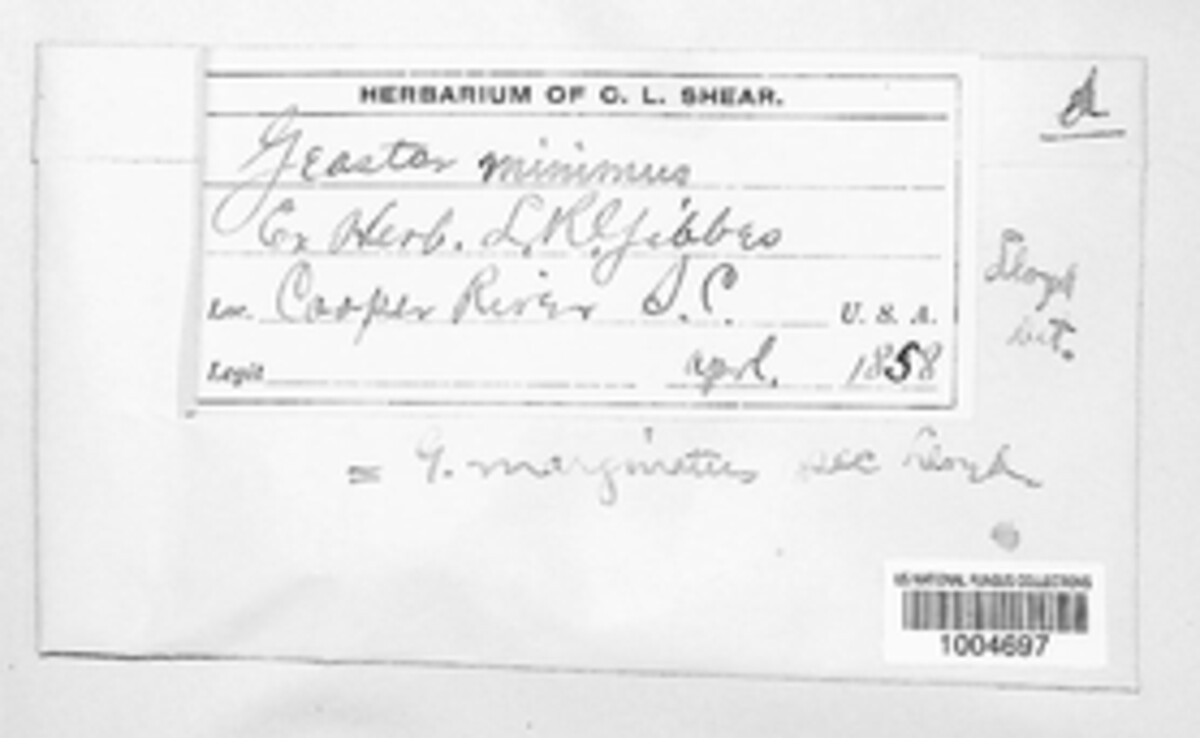 HERBARIUM OF C. L. SHEAR.
d
Geaster minimus
Ex Herb. L. R. Gibbes
Loc. Cooper River S. C. U. S. A.
Legit April. 1858
Lloyd
det.
= G. marginatus sec Lloyd
US NATIONAL FUNGUS COLLECTIONS
1004697